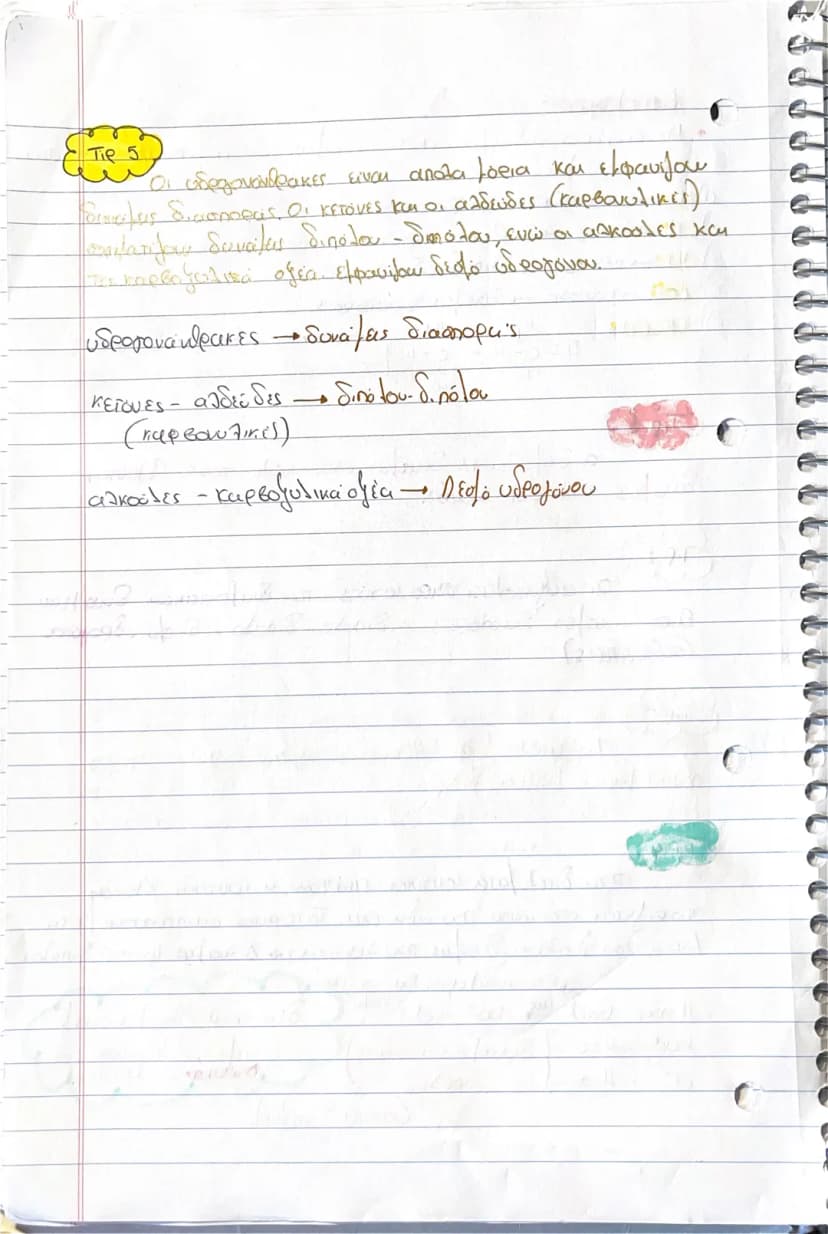 Tip 5
Οι υδρογονάνθρακες είναι απολα μόρια και εμφανίζουν
δυνάμεις διασποράς. Οι κετόνες και οι αλδεύδες (καρβονυλικές)
σχηματίζουν δυνάμεις διπόλου - διπόλου, ενώ οι αλκοόλες και
τα καρβοξυλικά οξέα εμφανίζουν δεσμό υδρογόνου.
υδρογονάνθρακες → δυνάμεις διασποράς
κετόνες - αλδεύδες → διπόλου-διπόλου
(καρβονυλικές)
αλκοόλες - καρβοξυλικά οξέα → Δεσμό υδρογόνου